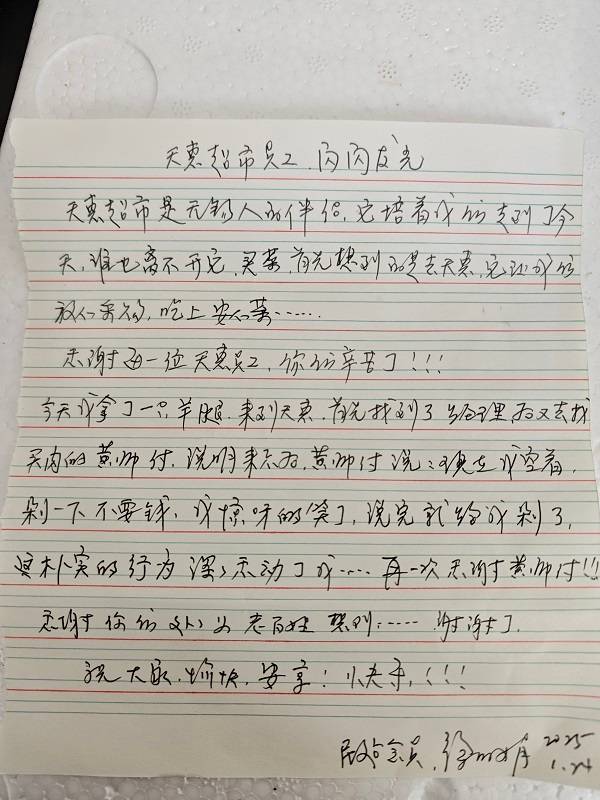 天惠超市员工,闪闪发光
天惠超市是无锡人的伴侣,它培着我们走到了今
天,谁也离不开它,买菜,首先想到的是去天惠,它让我们
放心采购,吃上安心菜……
感谢每一位天惠员工,你们辛苦了!!!
今天我拿了一只羊腿,来到天惠,首先找到了经理后又去找
买肉的黄师付,说明来意后,黄师付说:现在我空着,
剁一下不要钱,我惊呀的笑了,说完就给我剁了,
真朴实的行为深深感动了我……再一次感谢黄师付!!!
感谢你们处处为老百姓想到……谢谢了.
祝大家,愉快,安享!快乐,!!!
会员,徐 2025
1.24